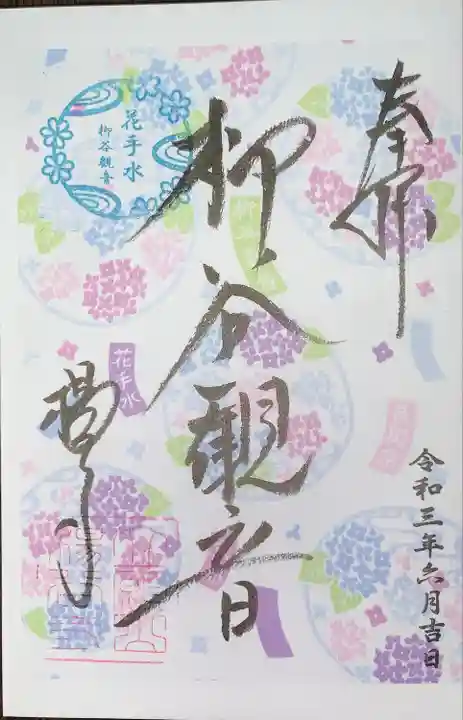 奉拝
令和三年六月吉日
柳谷観音
楊谷寺
花手水
柳谷観音
花手水